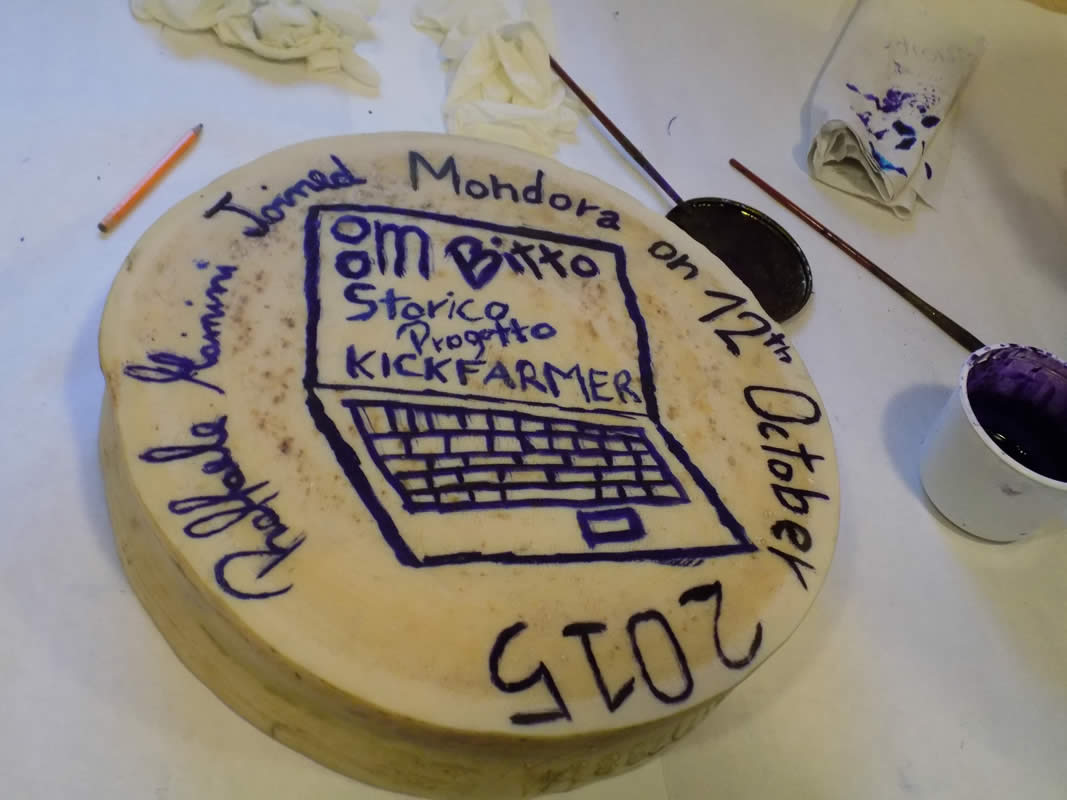 Raffaele Mainini Joined Mondora on 12th October 2015
Bitto
Storico
Progetto
KICKFARMER